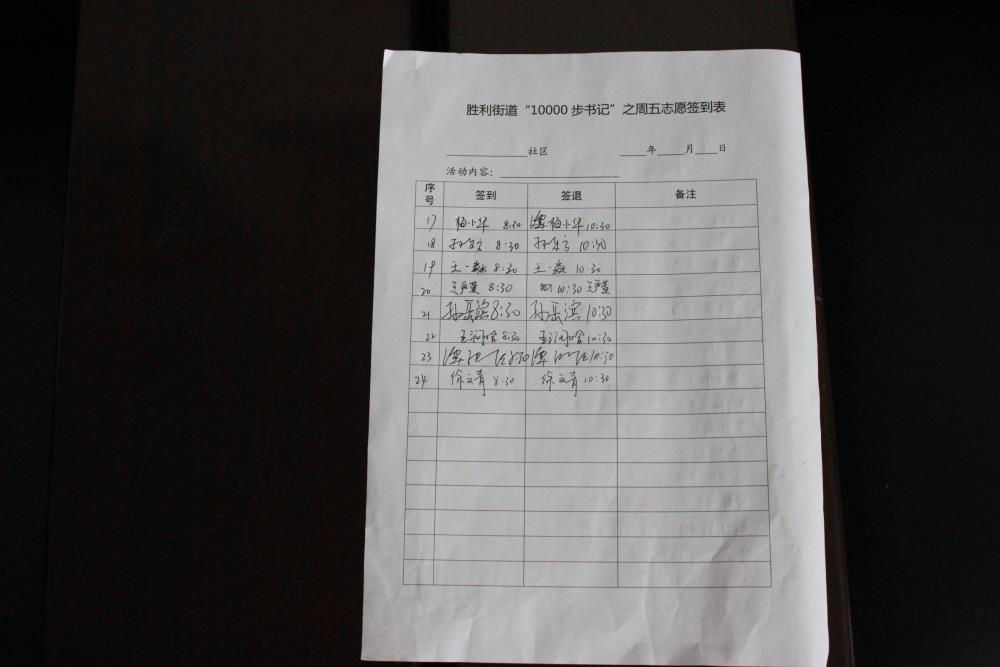 胜利街道“10000 步书记”之周五志愿签到表
____________社区 ____年____月____日
活动内容：__________________
序号 签到 签退 备注
17 梅小华 8:30 梅小华 10:30
18 孙 8:30 孙 10:30
19 王一淼 8:30 王一淼 10:30
20 8:30 10:30
21 孙岳滨 8:30 孙岳滨 10:30
22 8:30 10:30
23 谭 8:30 谭 10:30
24 徐文青 8:30 徐文青 10:30